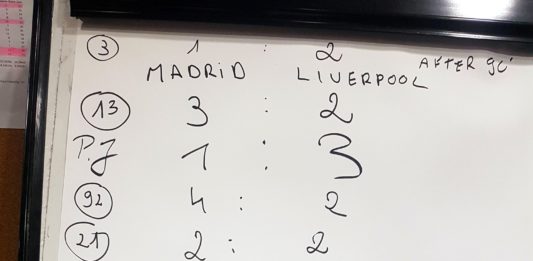 3 1 : 2
MADRID LIVERPOOL AFTER 90'
13 3 : 2
P.J 1 : 3
92 4 : 2
21 2 : 2